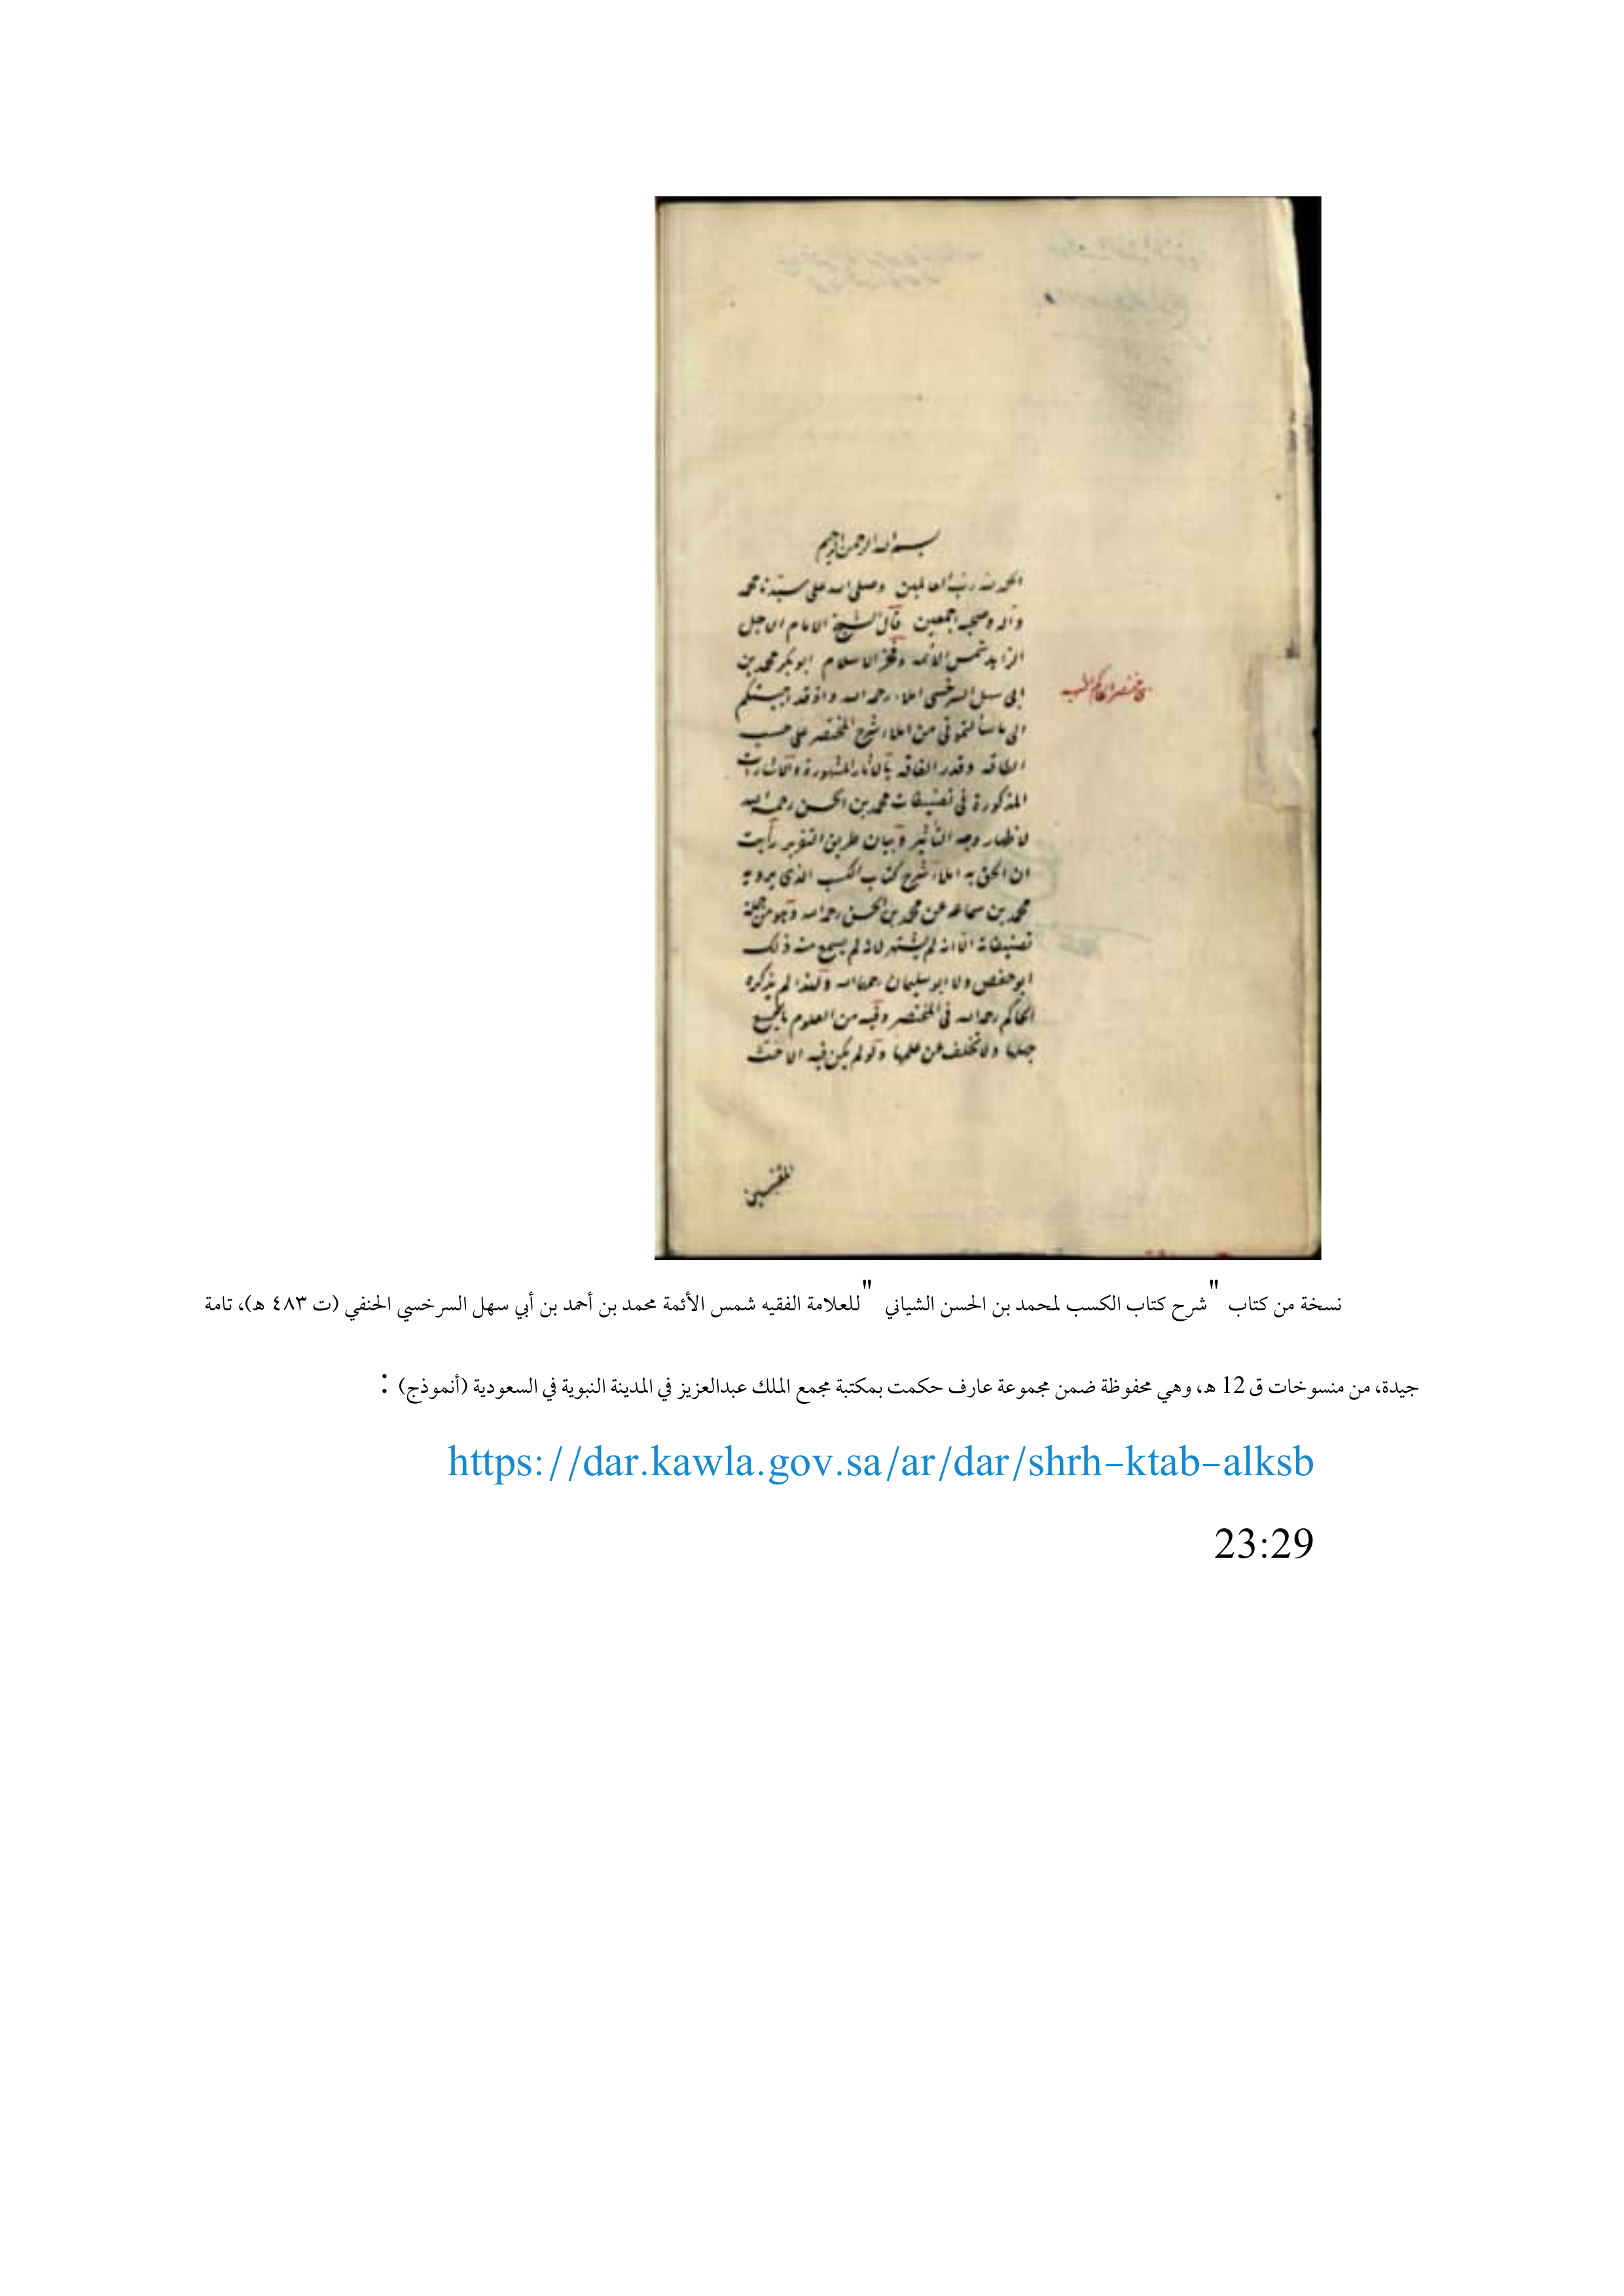 بسم الله الرحمن الرحيم
الحمد لله رب العالمين وصلى الله على سيدنا محمد
وآله وصحبه اجمعين قال الشيخ الامام الاجل
الزاهد شمس الأئمه وفخر الاسلام ابو بكر محمد بن
ابى سهل السرخسى املاء رحمه الله واذ قد اجبتكم
الى ما سألتمونى من املاء شرح المختصر على حسب
الطاقه وقدر الفاقه بالاثار المشهورة والاشارات
المذكورة فى تصنيفات محمد بن الحسن رحمه الله
لاظهار وجه التأثير وبيان طريق التقوير رأيت
ان الحق به املاء شرح كتاب الكسب الذى يرويه
محمد بن سماعه عن محمد بن الحسن رحمه الله وهو من جملة
تصنيفاته الا انه لم يشتهر لانه لم يسمع منه ذلك
ابو حفص ولا ابو سليمان رحمهما الله ولهذا لم يذكره
الحاكم رحمه الله فى المختصر وفيه من العلوم
جهلها ولا تخلف عن علمها ولو لم يكن فيه الا حث
نسخة من كتاب "شرح كتاب الكسب لمحمد بن الحسن الشياني "للعلامة الفقيه شمس الأئمة محمد بن أحمد بن أبي سهل السرخسي الحنفي (ت ٤٨٣ هـ)، تامة
جيدة، من منسوخات ق 12 هـ، وهي محفوظة ضمن مجموعة عارف حكمت بمكتبة مجمع الملك عبدالعزيز في المدينة النبوية في السعودية (أنموذج) :
https://dar.kawla.gov.sa/ar/dar/shrh-ktab-alksb
23:29